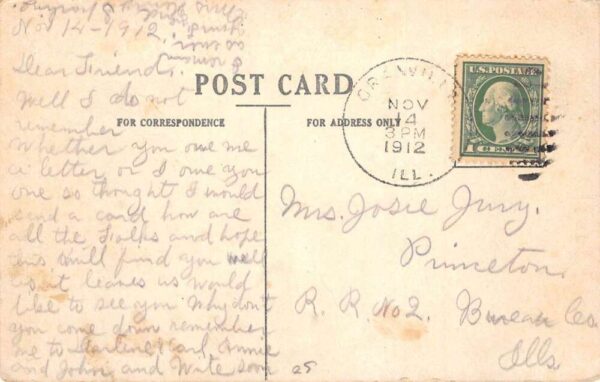 Nov 14-1912
Dear Friends.
Well I do not
remember
Whether you owe me
a letter or I owe you
one so thought I would
send a card how are
all the Folks and hope
this will find you well
as it leaves us would
like to see you Why dont
you come down remember
me to Earl Annie
and John and Write soon
POST CARD
FOR CORRESPONDENCE
FOR ADDRESS ONLY
NOV
14
3 PM
1912
ILL.
U.S. POSTAGE
1 CENT
Mrs. Josie Jury.
Princeton
R. R. No 2. Bureau Co.
Ills.
25